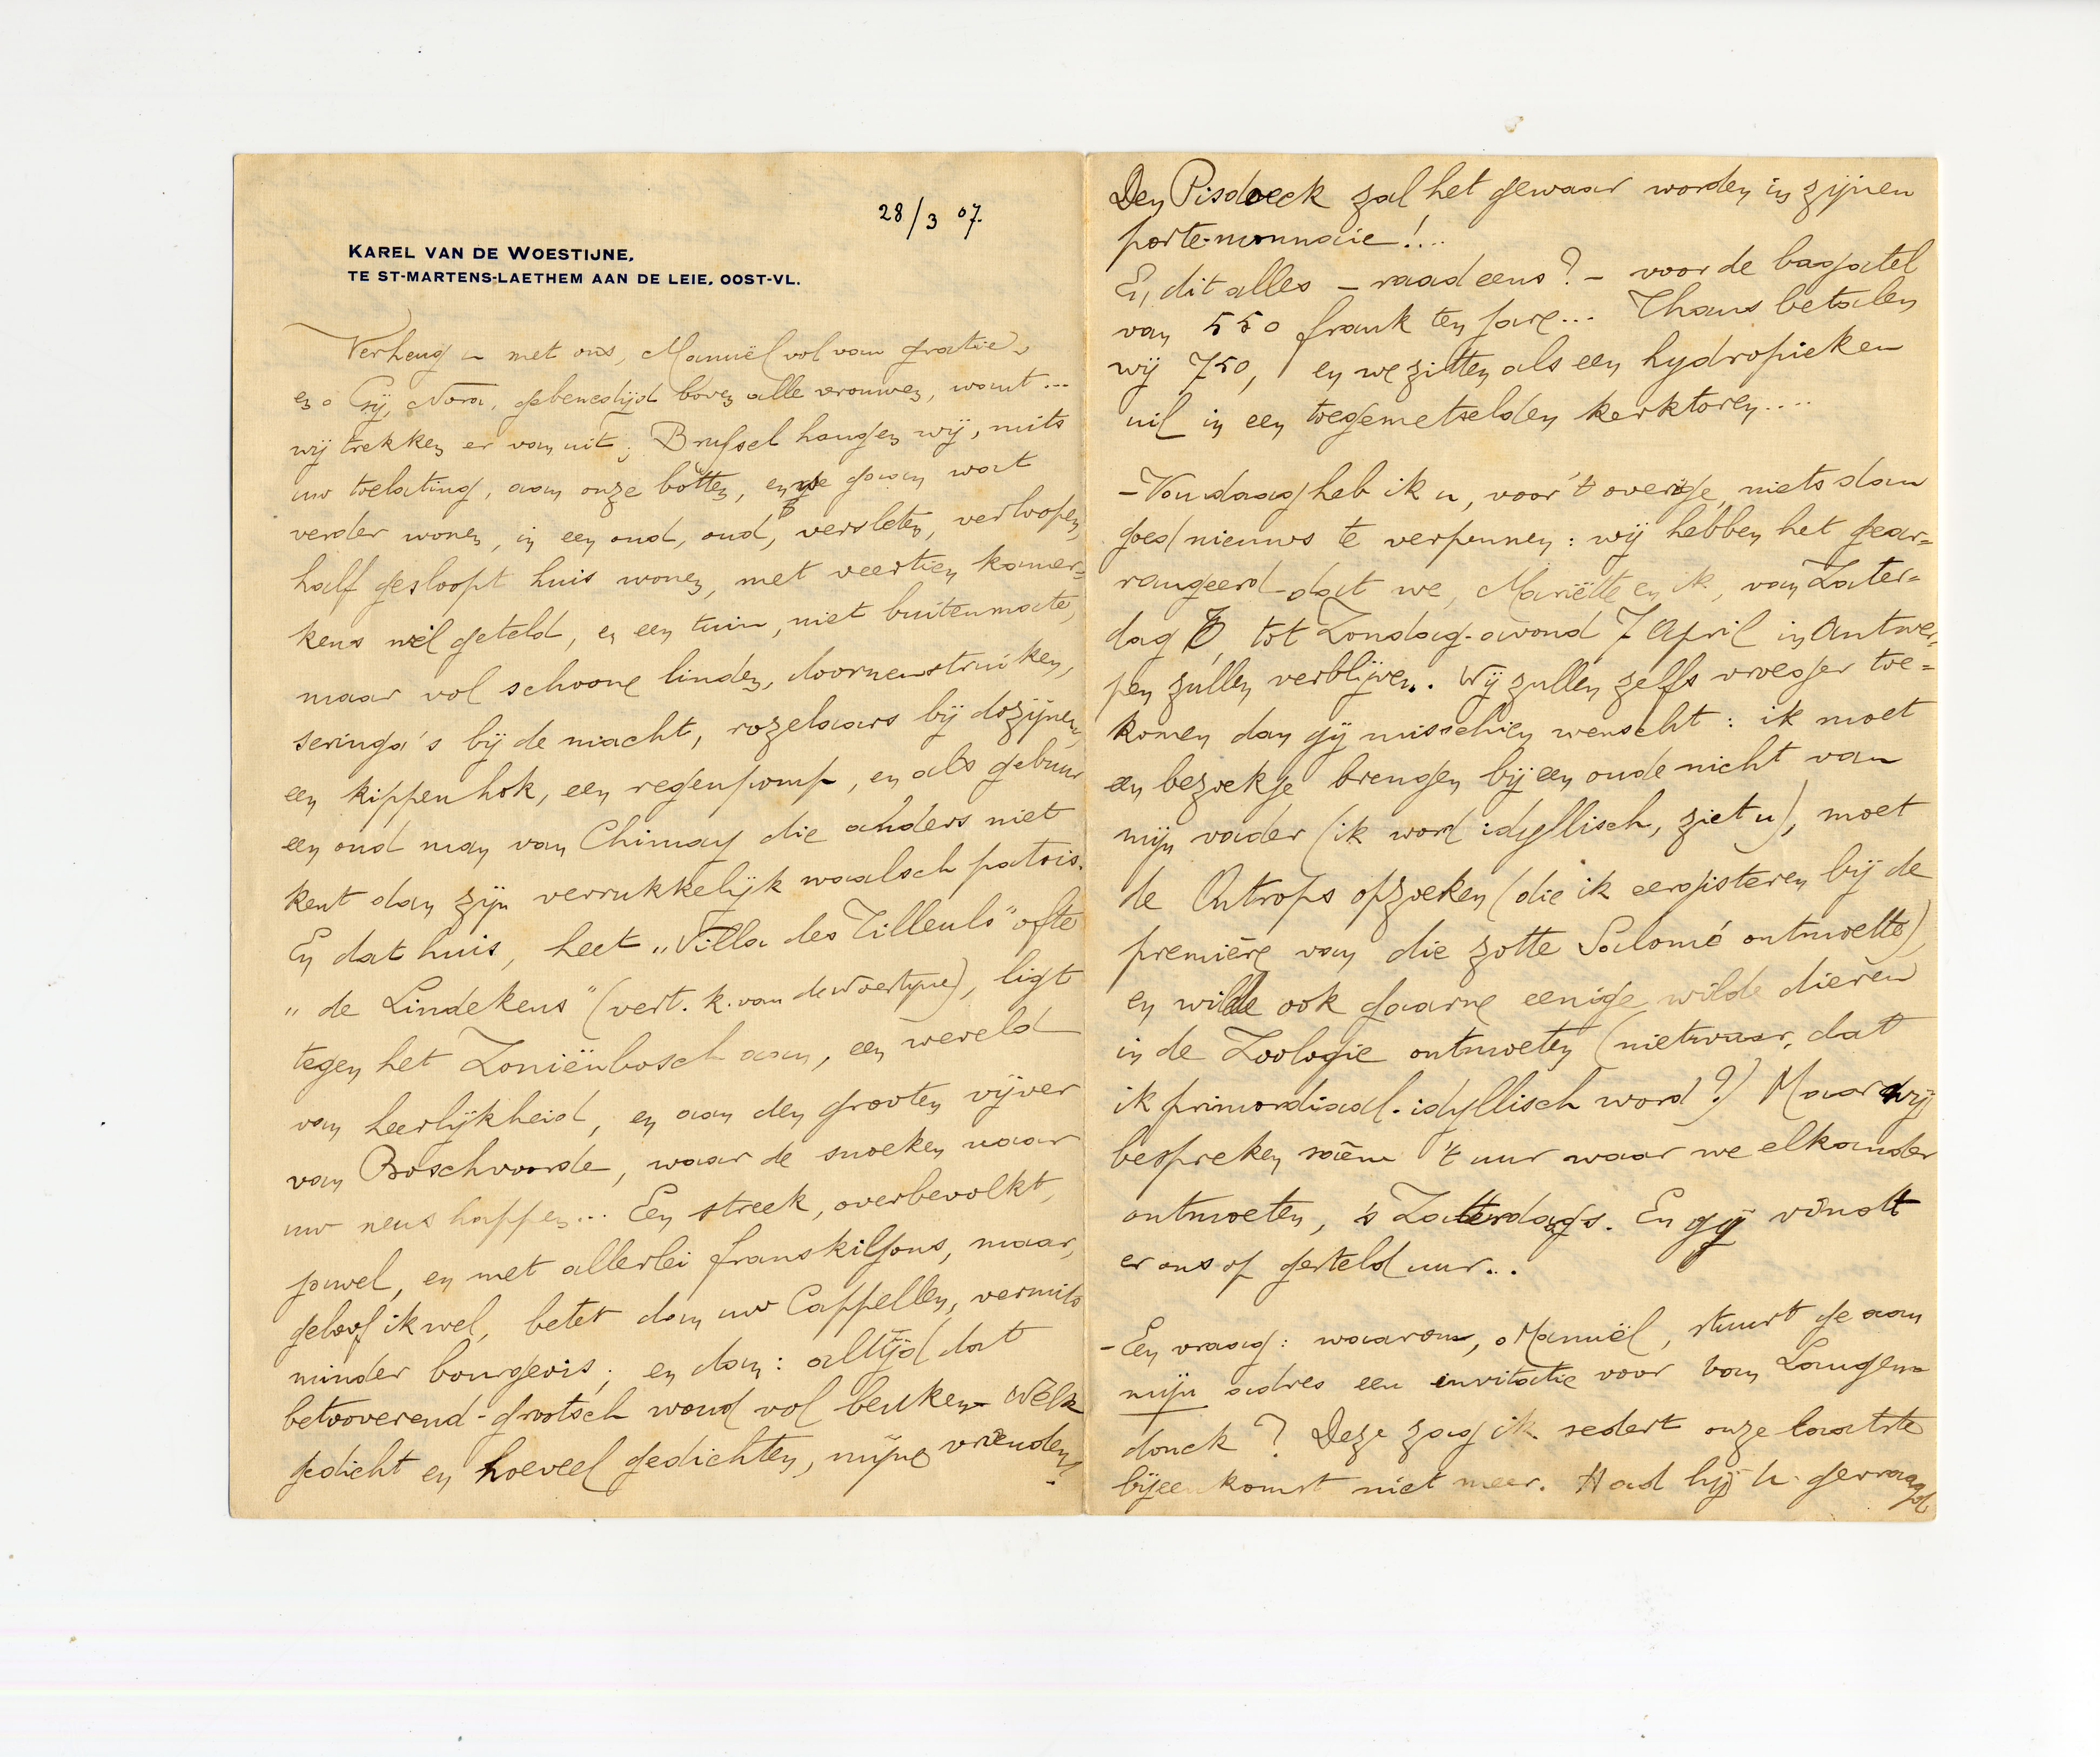 28/3 07.
KAREL VAN DE WOESTIJNE,
TE ST-MARTENS-LAETHEM AAN DE LEIE, OOST-VL.
Verheug u met ons, Manuël vol van gratie,
en o Gij, Nora, gebenedijd boven alle vrouwen, want...
wij trekken er van uit; Brussel hangen wij, mits
uw toelating, aan onze botten, en we gaan wat
verder wonen, in een oud, oud, versleten, verloopen,
half gesloopt huis wonen, met veertien kamer=
kens wèl geteld, en een tuin, niet buitenmate,
maar vol schoone linden, doornenstruiken,
seringa's bij de macht, rozelaars bij dozijnen,
een kippenhok, een regenpomp, en als gebuur
een oud man van Chimay die anders niet
kent dan zijn verrukkelijk waalsch patois.
En dat huis, heet „Villa des Tilleuls" ofte
„de Lindekens" (vert. k. van de Woestijne), ligt
tegen het Zoniënbosch aan, een wereld
van heerlijkheid, en aan den grooten vijver
van Boschvoorde, waar de snoeken naar
uw neus happen... Een streek, overbevolkt,
jawel, en met allerlei franskiljons, maar,
geloof ik wel, beter dan uw Cappellen, vermits
minder bourgeois; en dan: altijd dat
betooverend-grootsch woud vol beuken. Wèlk
gedicht en hoeveel gedichten, mijne vrienden!
Den Pisdoeck zal het gewaar worden in zijnen
porte-monnaie!...
En, dit alles – raad eens? – voor de bagatel
van 550 frank ten jare... Thans betalen
wij 750, en we zitten als een hydropieken
uil in een toegemetselden kerktoren....
– Vandaag heb ik u, voor 't overige, niets dan
goed nieuws te verpennen: wij hebben het gear=
rangeerd dat we, Mariëtte en ik, van Zater=
dag 6, tot Zondag-avond 7 April in Antwer=
pen zullen verblijven. Wij zullen zelfs vroeger toe=
komen dan gij misschien wenscht: ik moet
een bezoekje brengen bij een oude nicht van
mijn vader (ik word idyllisch, ziet u), moet
de Ontrops opzoeken (die ik eergisteren bij de
première van die zotte Salomé ontmoette),
en wilde ook gaarne eenige wilde dieren
in de Zoologie ontmoeten (nietwaar, dat
ik primordiaal-idyllisch word?) Maar wij
bespreken 't uur waar we elkander
ontmoeten, 's Zaterdags. En gij vindt
er ons op gesteld uur...
– Een vraag: waarom, o Manuël, stuurt ge aan
mijn adres een invitatie voor van Langen=
donck? Deze zag ik sedert onze laatste
bijeenkomst niet meer. Had hij u gevraagd